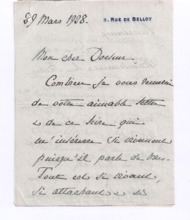 29 Mars 1908.
5, RUE DE BELLOY
Mon cher Docteur
Combien je vous remercie
de votre aimable lettre
et de ce livre qui
m'intéresse si vivement
puisqu'il parle de vous.
Tout est si vivant,
si attachant